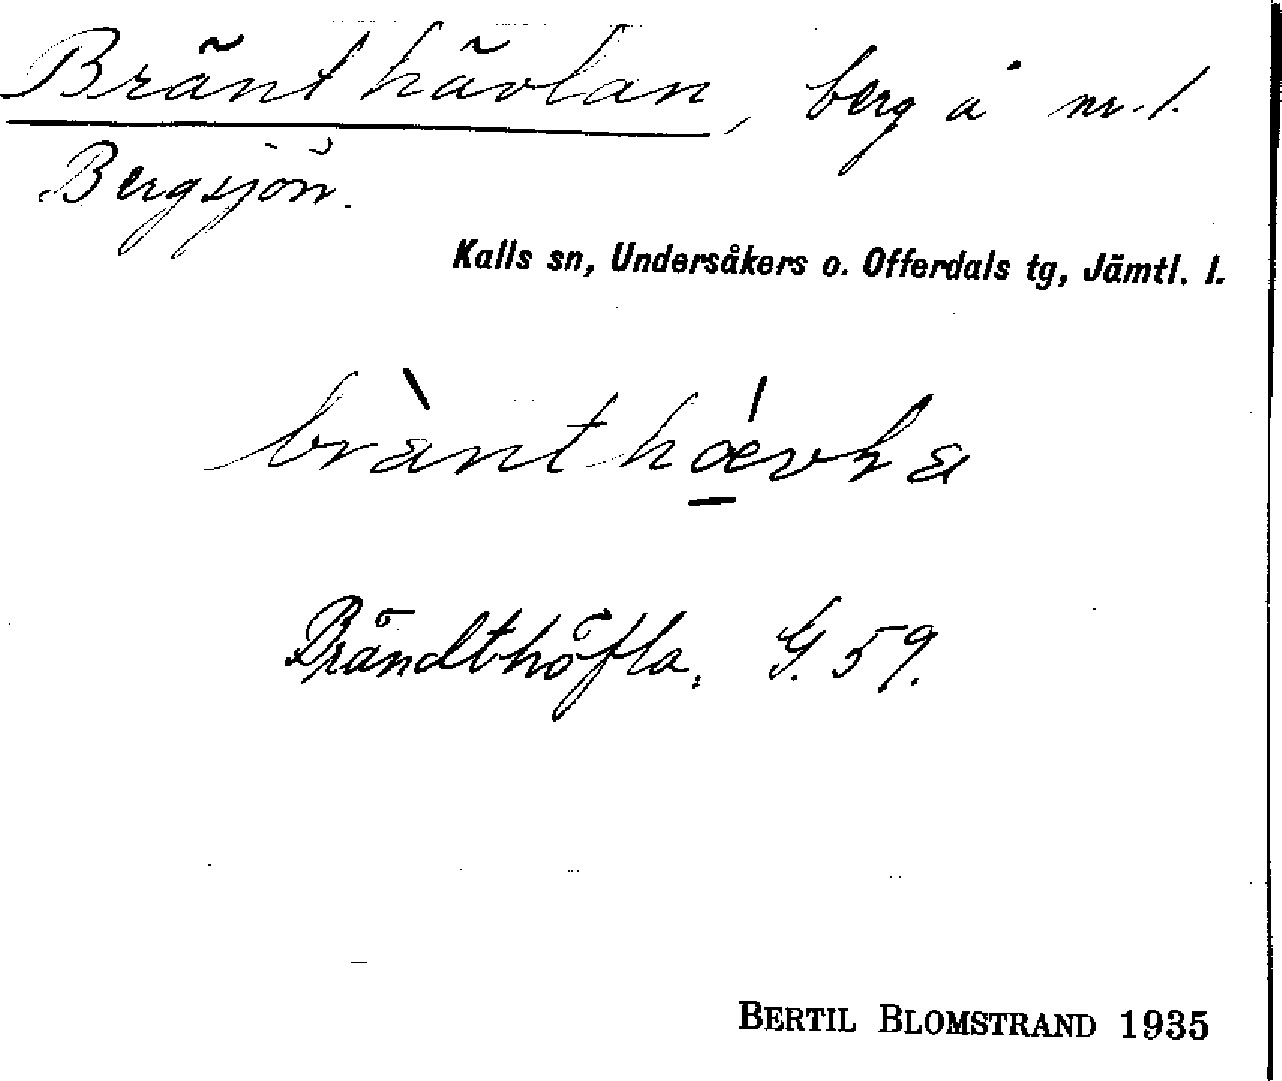 Bränthävlan, berg å nr. 1.
Bergsjön.
Kalls sn, Undersåkers o. Offerdals tg, Jämtl. l.
Brändthöfla, G. 59.
BERTIL BLOMSTRAND 1935